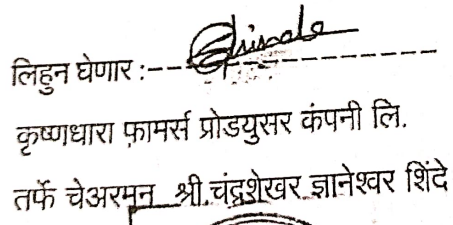 लिहुन घेणार :-
कृष्णधारा फ़ामर्स प्रोडयुसर कंपनी लि.
तर्फे चेअरमन श्री.चंद्रशेखर ज्ञानेश्वर शिंदे